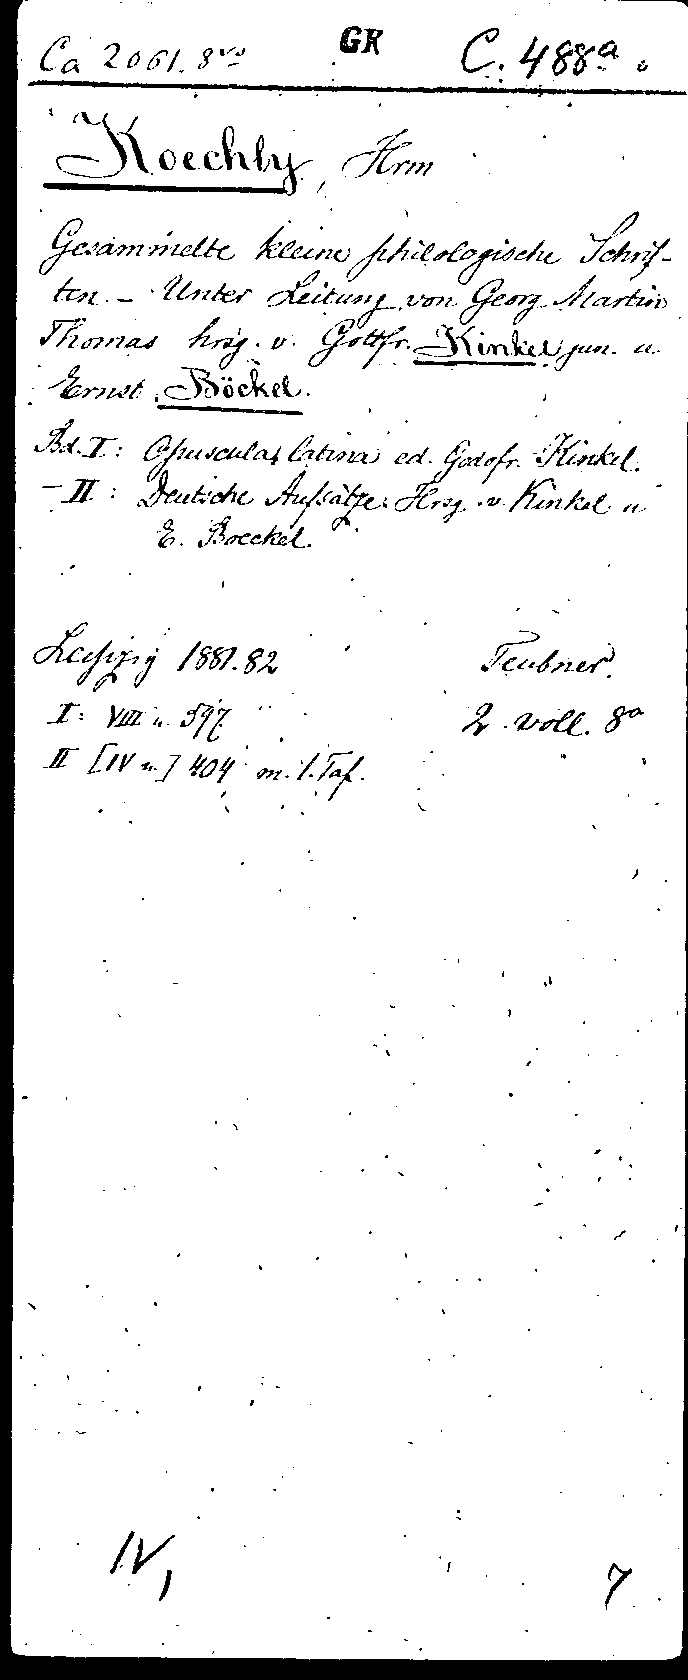 Ca 2061. 8vo GK C. 488a.
Koechly, Hrm
Gesammelte kleine philologische Schrif-
ten. - Unter Leitung von Georg Martin
Thomas hrsg. v. Gottfr. Kinkel jun. u.
Ernst Böckel.
Bd. I: Opuscula latina ed. Godofr. Kinkel.
- II: Deutsche Aufsätze. Hrsg. v. Kinkel u
E. Boeckel.
Leipzig 1881.82 Teubner.
I: VIII u. 597. 2 voll. 8o
II [IV u.] 404 m. 1. Taf.
IV, 7